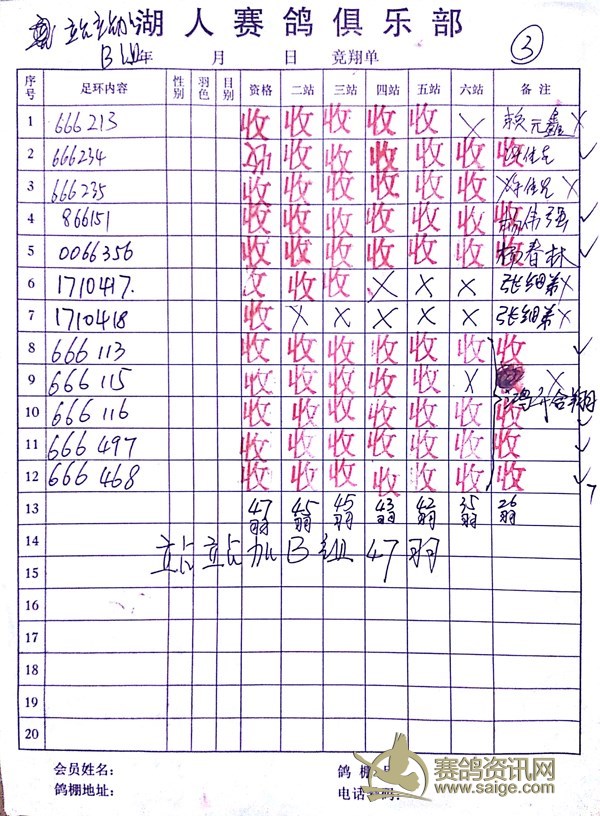 湖人赛鸽俱乐部
B组 年 月 日 竞翔单 ③
序号 足环内容 性别 羽色 目别 资格 二站 三站 四站 五站 六站 备注
1 666213 收 收 收 收 收 X 赖元鑫 X
2 666234 收 收 收 收 收 收 收 ✓
3 666235 收 收 收 收 收 收 X
4 866151 收 收 收 收 收 收 收 杨伟强 ✓
5 0066356 收 收 收 收 收 收 收 赖春林 ✓
6 1710417. 收 收 收 X X X 张细弟 X
7 1710418 收 X X X X X 张细弟 X
8 666 113 收 收 收 收 收 收 收 ✓
9 666 115 收 收 收 收 收 X X
10 666 116 收 收 收 收 收 收 收 ✓
11 666 497 收 收 收 收 收 收 收 ✓
12 666 468 收 收 收 收 收 收 收 ✓
7
13 47羽 45羽 45羽 43羽 42羽 35羽 26羽
14 站站加B组47羽
15
16
17
18
19
20
会员姓名: 鸽棚
鸽棚地址: 电话号码:
赛鸽资讯网
www.saige.com